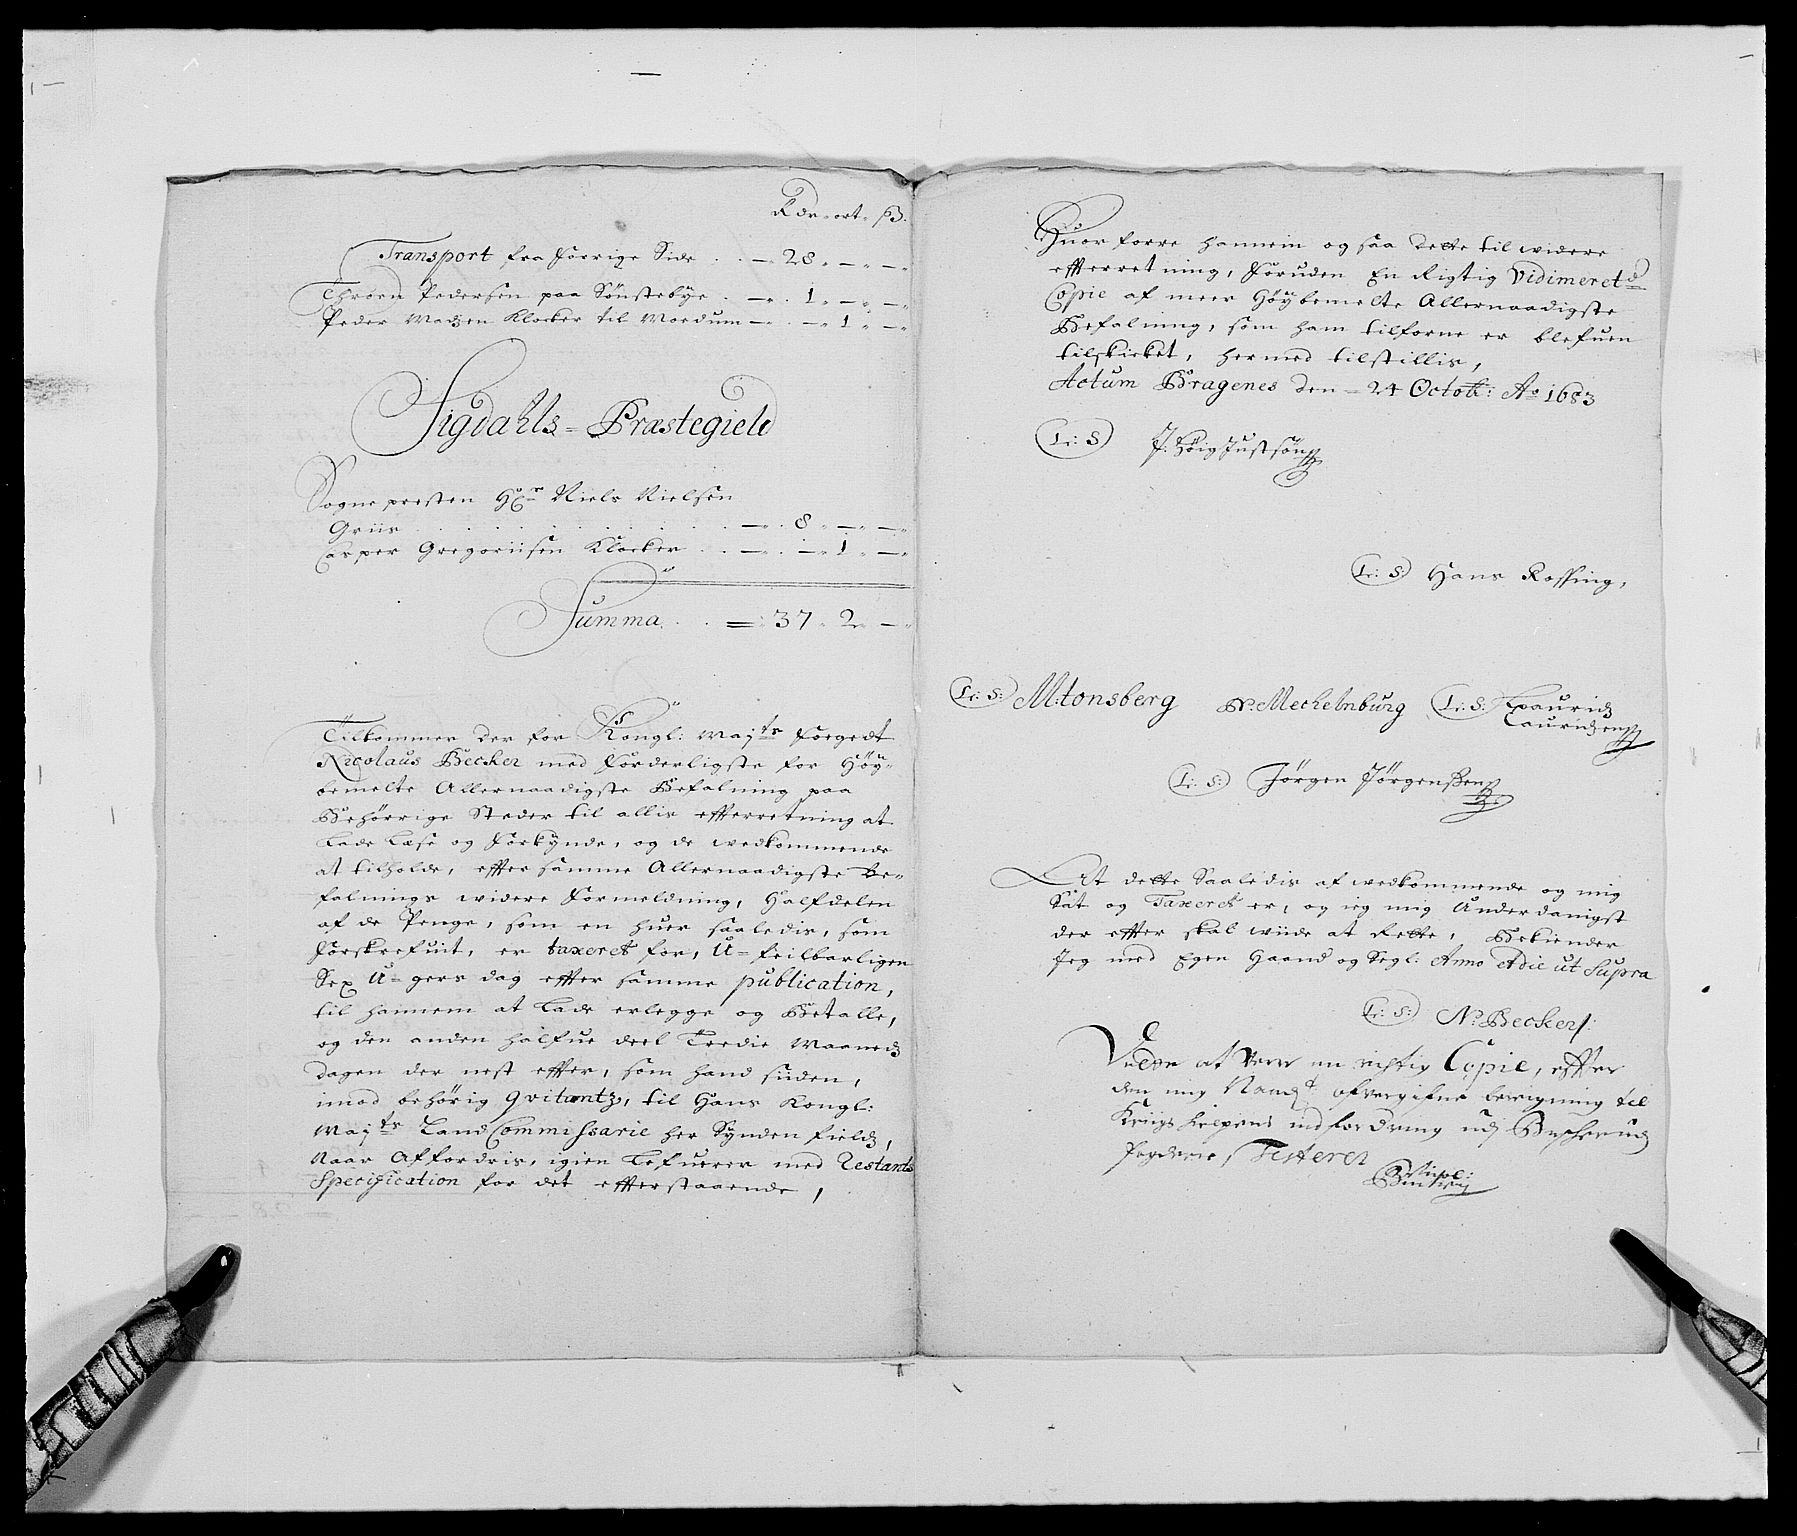 Rdr. ort. ß.
Transport fra Forrige Side . . — 28 „ — „ —
Throen Pedersen paa Sønstebÿe . — . 1 „ — „ —
Peder Madzen Klocker til Modum — . — „ 1 „ —
Sigdahls - Præstegield
Sogne presten Hr Niels Nielsen
Griis . . . . . . . . — . 8 „ — „ —
Casper Gregoriisen Klocker . . — . — „ 1 „ —
Summa . . = 37 „ 2 „ —
Tilkommer der for Kongl: Maÿts Foegedt
Nicolaus Becker med Forderligste for Høÿ-
bemelte Allernaadigste Befalning paa
Behørrige Steder til allis effterretning at
Lade Læse og Forkÿnde, og de wedkommende
at tilholde, effter samme Allernaadigste be-
falnings widere Formeldning, Halfdelen
af de Penge, som en huer saaledis, som
Forskrefuit, er taxeret for, U-feilbarligen
Sex U-gers dag effter samme publication,
til hannem at Lade erlegge og Betalle,
og den anden halfue deel Tredie Maaneds
dagen der nest effter, som hand siden,
imod behørig qvitantz, til Hans Kongl:
Maÿts Land Commissarie her Synden fields,
Naar Affordris, igien Lefuerer med Restants
Specification for det effterstaaende,
Huor forre hannem og saa dette til widere
effterretning, Foruden En Rigtig Vidimeret
Copie af meer Høÿbemelte Allernaadigste
Befalning, som ham tilforne er blefuen
tilskicket, hermed tilstillis,
Actum Bragenes den - 24 Octob: Ao 1683
(L: S) J: Høig Justsøn
(L: S:) Hans Rossing,
(L: S:) M: tonsberg N: Mechelnburg (L: S:) Laurids
Lauridzen
(L: S:) Jørgen Jørgenßen
At dette Saaledis af wedkommende og mig
Sat og Taxeret er, og ieg mig Underdanigst
der effter skal wiide at Rette, Bekiender
Jeg med Egen Haand og Segl: Anno et die ut Supra
(L: S:) N: Becker/:
Viden at vere en richtig Copie, effter
den mig ofvergifne beregning til
Kriigs hielpens indfordring udj Buscheruds
Fogderie, Testerer